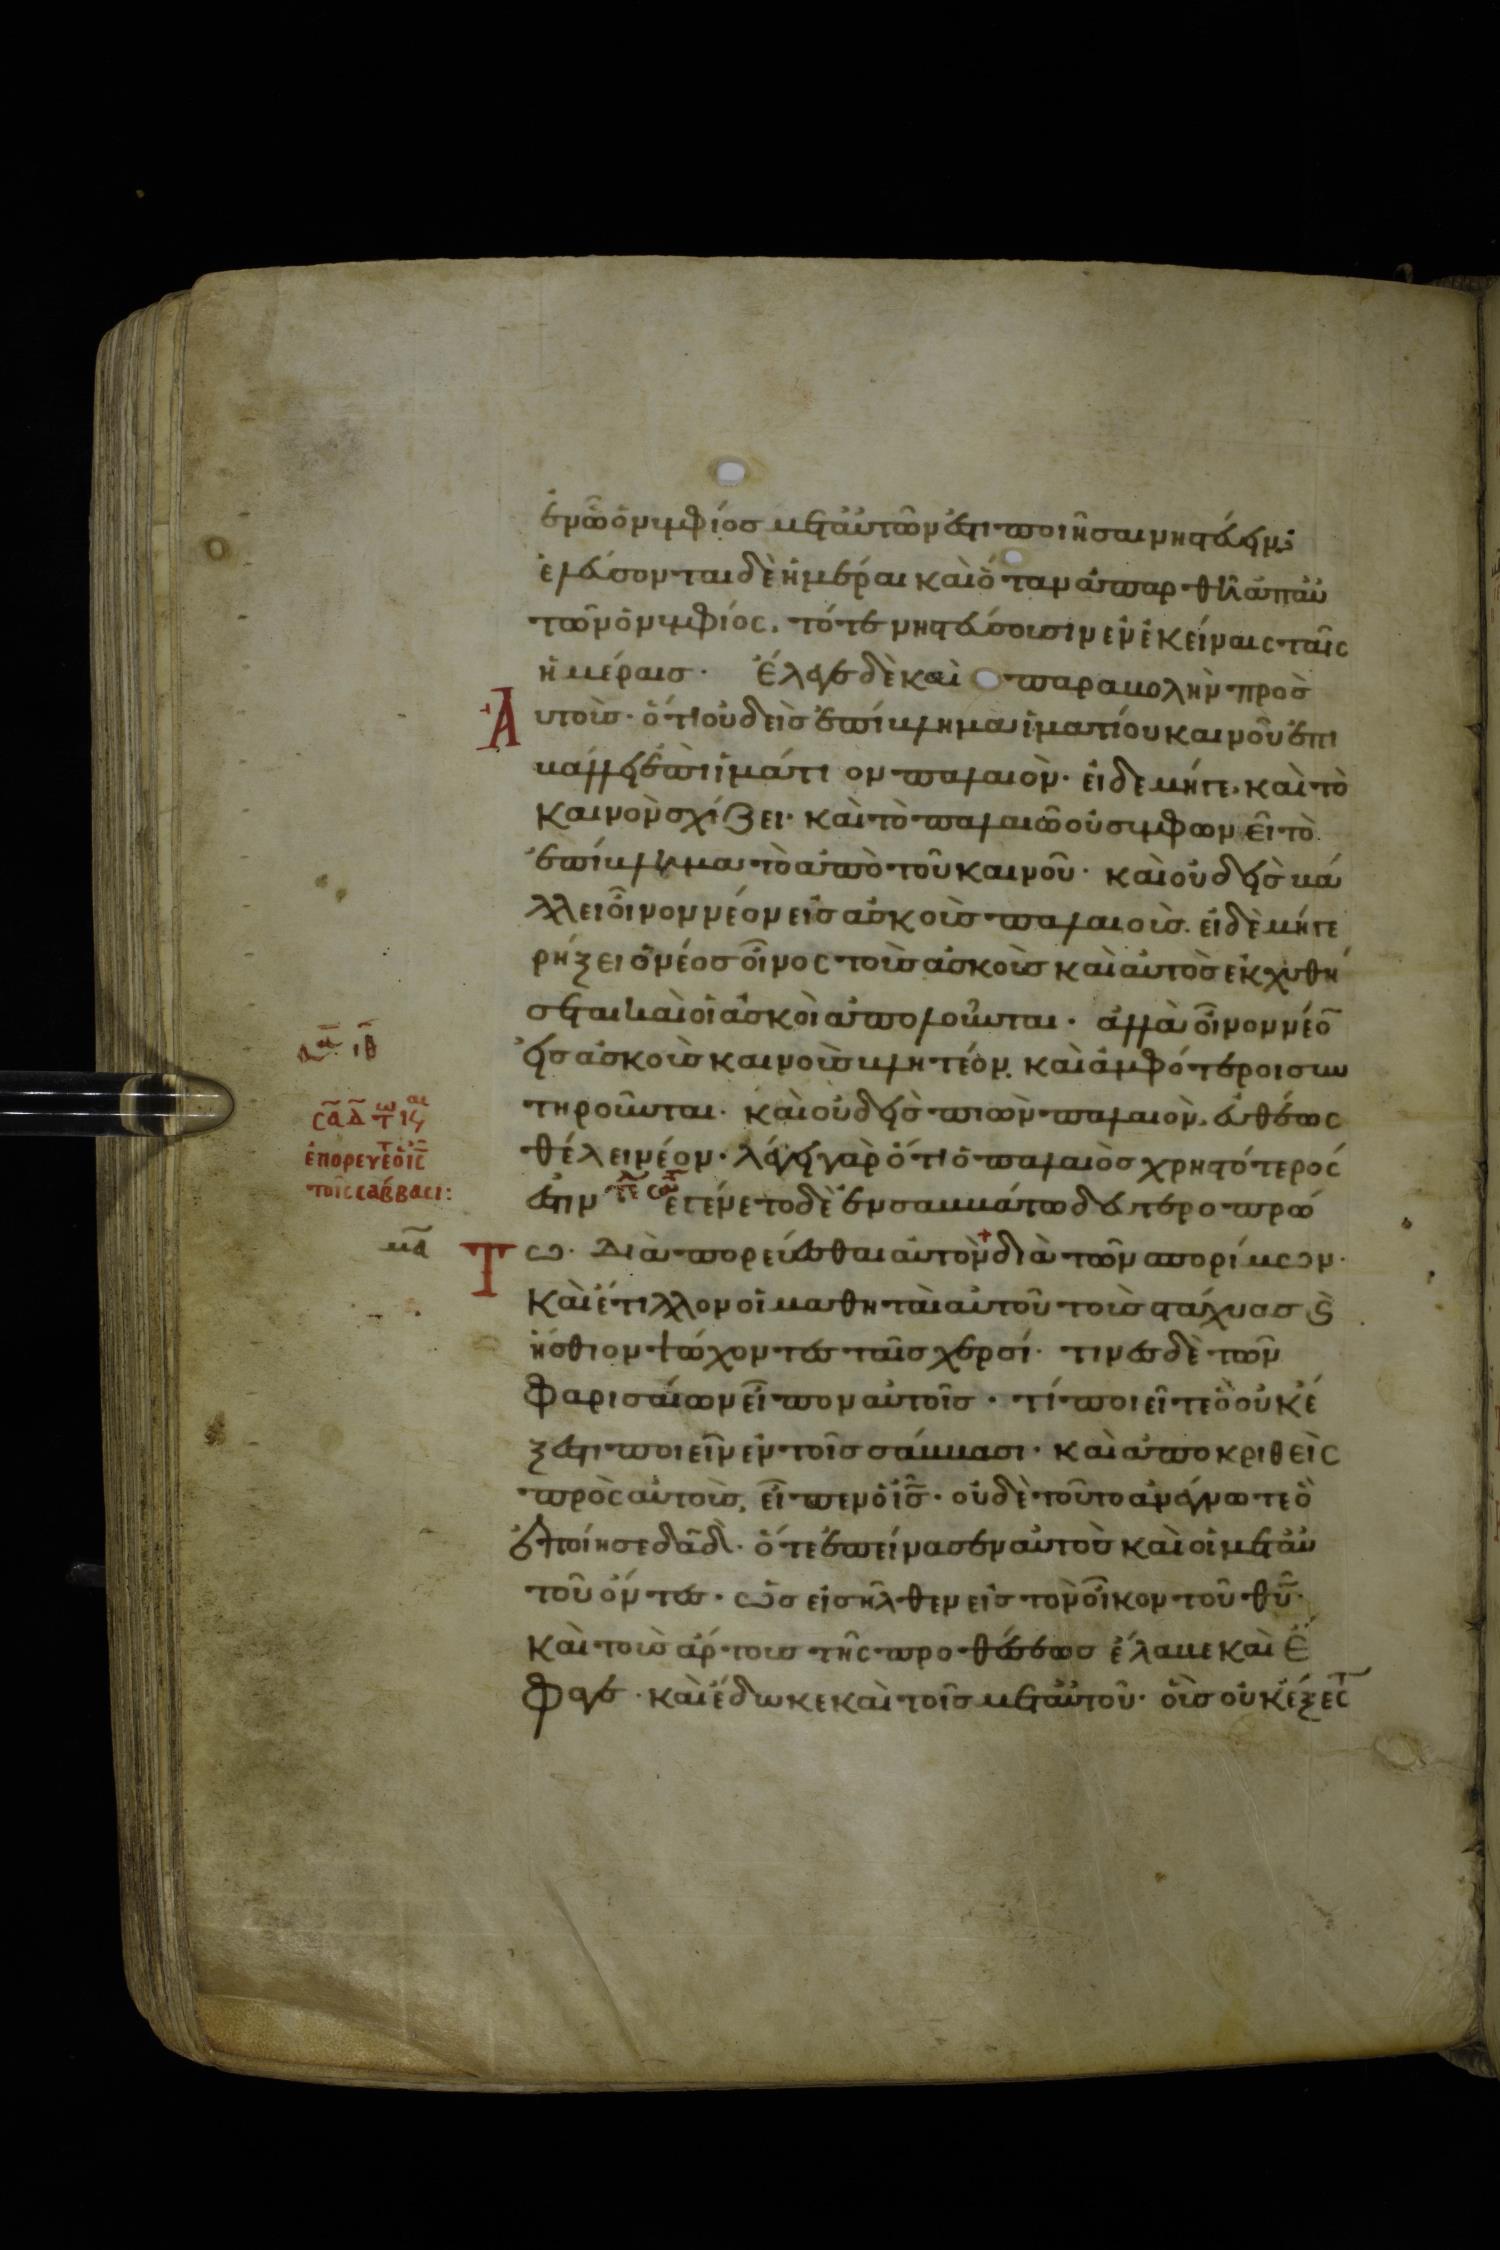 ἐν ὧ ὁ νυμφίος μετ αὐτῶν ἐστι ποιῆσαι νηστεύειν;
ἐλεύσονται δὲ ἡμέραι καὶ ὅταν ἀπαρθῆ ἀπ αὐ
τῶν ὁ νυμφίος. τότε νηστεύσουσιν ἐν ἐκείναις ταῖς
ἡμέραις· Ἔλεγε δὲ καὶ παραβολὴν πρὸς
Αυτοὺς· ὅτι οὐδεὶς ἐπίβλημα ἱματίου καινοῦ ἐπι
βάλλει ἐπὶ ἱμάτιον παλαιὸν· εἰ δε μήγε, καὶ τὸ
καινὸν σχίζει· καὶ τὸ παλαιῶ οὐ συμφωνεῖ τὸ
ἐπίβλημα τὸ ἀπὸ τοῦ καινοῦ· καὶ οὐδεὶς βά
λλει οἶνον νέον εἰς ἀσκοὺς παλαιοὺς. εἰ δὲ μήγε
ρήξει ὁ νέος οἶνος τοὺς ἀσκοὺς καὶ αὐτὸς ἐκχυθή
σεται καὶ οἱ ἀσκοὶ ἀπολοῦνται· ἀλλὰ οἶνον νέο̅
εἰς ἀσκοὺς καινοὺς βλητέον. καὶ ἀμφότεροι συν
τηροῦνται· καὶ οὐδεὶς πιὼν παλαιὸν, εὐθέως
θέλει νέον· λέγει γὰρ ὅτι ὁ παλαιὸς χρηστότερός
ἐστιν ἐγένετο δὲ ἐν σαββάτω δευτεροπρώ
Τω· Διὰπορεύεσθαι αὐτὸν διὰ τῶν σπορίμων·
Καὶ ἔτιλλον οἱ μαθηταὶ αὐτοῦ τοὺς στάχυας ϗ
ἤσθιον ψώχοντες ταῖς χερσί· τινὲς δὲ τῶν
φαρισαίων εἶπον αὐτοῖς· τί ποιεῖτε ὃ οὐκ ἔ
ξεστι ποιεῖν ἐν τοῖς σάββασι· καὶ ἀποκριθεὶς
πρὸς αὐτοὺς, εἶπεν ὁ ι̅ς̅· οὐδὲ τοῦτο ἀνέγνωτε ὃ
ἐποίησε δα̅δ̅· ὅτε ἐπείνασεν αὐτὸς καὶ οἱ μετ αὐ
τοῦ ὄντες· ὡς εἰσῆλθεν εἰς τὸν οἶκον τοῦ θ̅υ̅·
καὶ τοὺς ἄρτους τῆς προθέσεως ἔλαβε καὶ ἔ
φαγε· καὶ ἔδωκε καὶ τοῖς μετ αὐτοῦ· οὓς οὐκ ἔξεστ
ιθ
σα̅ δ̅
ἐπορεύετο ὁ ι̅ς̅
τοῖς σάββασι:
μα̅